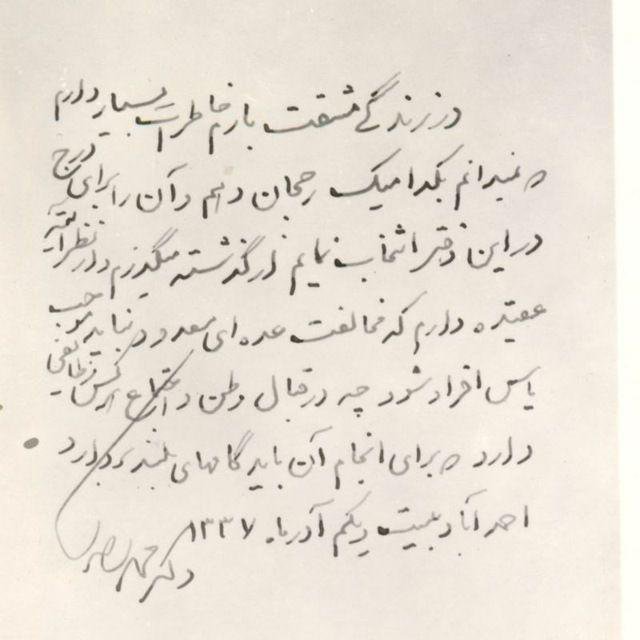 در زندگی مشقت بارم خاطرات بسیار دارم
و نمیدانم بکدامیک رجحان دهم و آن را برای درج
در این دفتر انتخاب نمایم از گذشته میگذرم و از نظر آتیه
عقیده دارم که مخالفت عده‌ای معدود نباید موجب
یاس افراد شود چه در قبال وطن و اجتماع هر کس وظایفی
دارد و برای انجام آن باید گامهای بلند بردارد
احمد آباد بیست و یکم آذرماه ۱۳۳۷
دکتر محمد مصدق